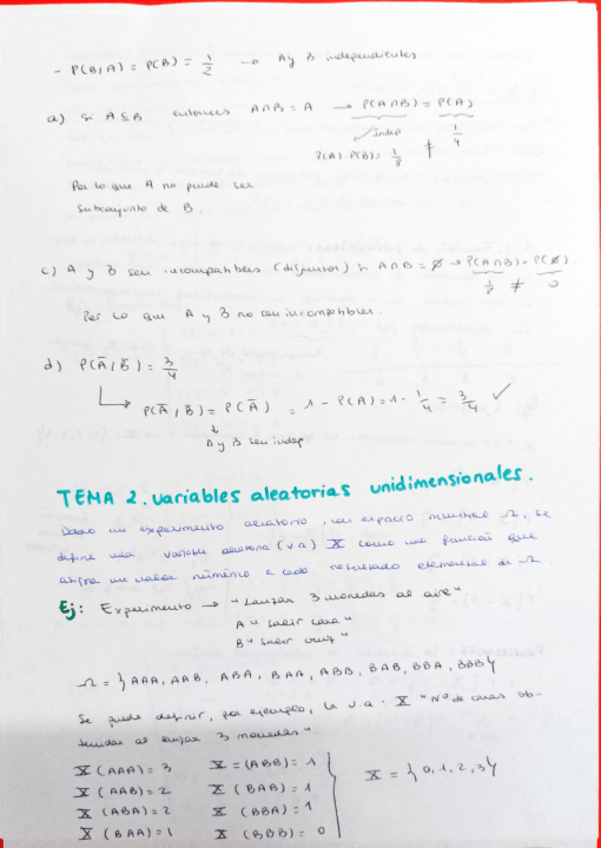 - P(B/A) = P(B) = 1/2 → A y B independientes
a) Si A⊆B entonces A∩B = A → P(A∩B) = P(A)
indep
P(A)·P(B) = 1/8 ≠ 1/4
Por lo que A no puede ser
subconjunto de B.
c) A y B son incompatibles (disjuntos) si A∩B = ∅ → P(A∩B) = P(∅)
1/8 ≠ 0
Por lo que A y B no son incompatibles.
d) P(Ā/B̄) = 3/4
P(Ā/B̄) = P(Ā) = 1 - P(A) = 1 - 1/4 = 3/4 ✓
A y B son indep.
TEMA 2. variables aleatorias unidimensionales.
Dado un experimento aleatorio, con espacio muestral Ω, se
define una variable aleatoria (v.a) X como una función que
asigna un valor numérico a cada resultado elemental de Ω.
Ej: Experimento → "Lanzar 3 monedas al aire"
A "salir cara"
B "salir cruz"
Ω = {AAA, AAB, ABA, BAA, ABB, BAB, BBA, BBB}
Se puede definir, por ejemplo, la v.a: X "Nº de caras ob-
tenidas al lanzar 3 monedas".
X(AAA) = 3 X = (ABB) = 1
X(AAB) = 2 X(BAB) = 1 X = {0, 1, 2, 3}
X(ABA) = 2 X(BBA) = 1
X(BAA) = 1 X(BBB) = 0